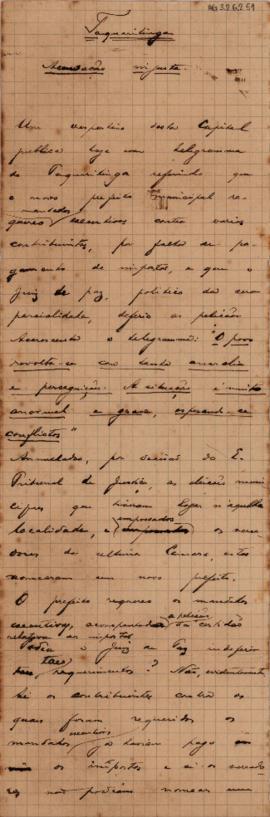 AG 3.2.6.2.51
Taquaritinga
Accusação injusta.
Um vespertino desta Capital
publica hoje um telegramma
de Taquaritinga referindo que
o novo prefeito municipal re-
mandados
quereu executivos contra varios
contribuintes, por falta de pa-
gamento de impostos, e que o
juiz de paz, politico da sua
parcialidade, deferio as petições
Accrescenta o telegramma: "O povo
revolta-se com tanta anarchia
e perseguição. A situação é muito
anormal e grave, esperando-se
conflictos"
Annulladas, por decisão do E.
Tribunal de Justiça, as eleições muni-
cipaes que tiveram logar n'aquella
empossados
localidade, e os verea-
dores da ultima Camara, estes
nomearam um novo prefeito.
O prefeito requereu os mandados
a petição
executivos, acompanhada da certidão
relativa aos impostos
o Juiz de Paz indeferir
taes
requerimentos? Não, evidentemente,
Se os contribuintes contra os
quaes foram requeridos os
mandados já haviam pago
os impostos e si os verea-
res não podiam nomear um